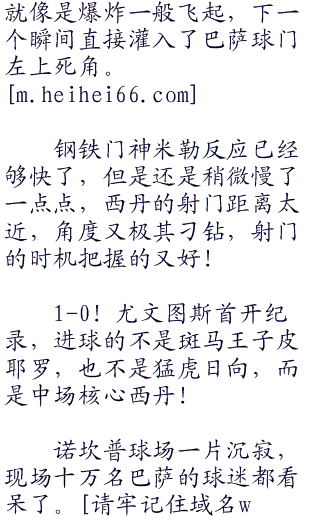 就像是爆炸一般飞起，下一
个瞬间直接灌入了巴萨球门
左上死角。
[m.heihei66.com]
钢铁门神米勒反应已经
够快了，但是还是稍微慢了
一点点，西丹的射门距离太
近，角度又极其刁钻，射门
的时机把握的又好！
1-0！尤文图斯首开纪
录，进球的不是斑马王子皮
耶罗，也不是猛虎日向，而
是中场核心西丹！
诺坎普球场一片沉寂，
现场十万名巴萨的球迷都看
呆了。[请牢记住域名w